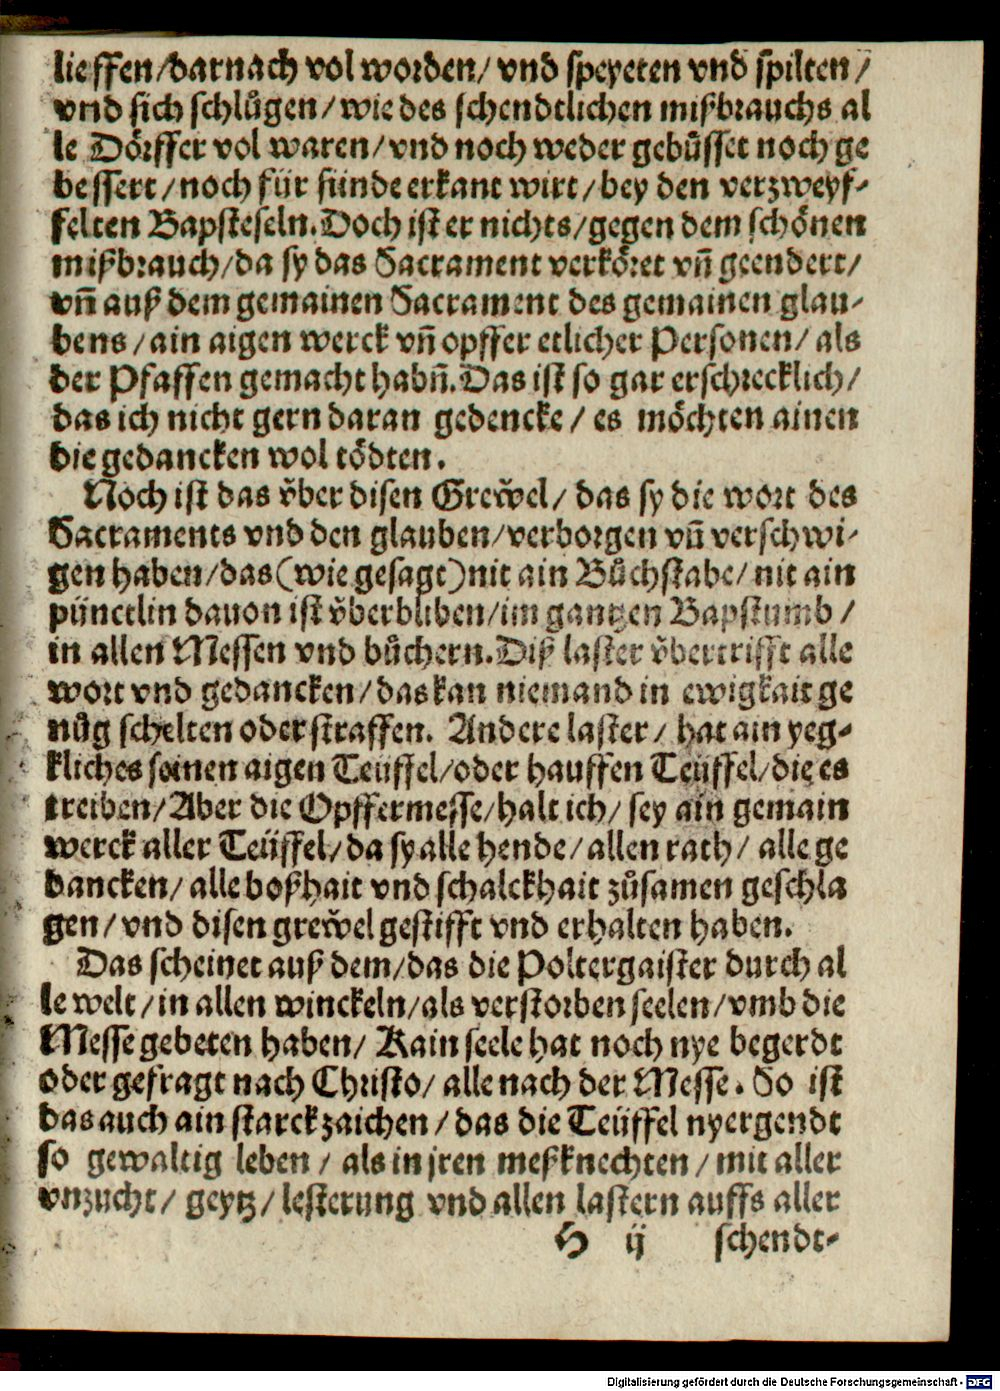 lieffen/darnach vol worden/ vnd speyeten vnd spilten /
vnd sich schlůgen/ wie des schendtlichen mißbrauchs al
le Dörffer vol waren/ vnd noch weder gebůsset noch ge
bessert/ noch für sünde erkant wirt/ bey den verzweyf-
felten Bapsteseln. Doch ist er nichts/ gegen dem schönen
mißbrauch/ da sy das Sacrament verköret vñ geendert/
vñ auß dem gemainen Sacrament des gemainen glau-
bens/ ain aigen werck vñ opffer etlicher Personen/ als
der Pfaffen gemacht habñ. Das ist so gar erschrecklich/
das ich nicht gern daran gedencke/ es möchten ainen
die gedancken wol tödten.
Noch ist das v̈ber disen Greẅel/ das sy die wort des
Sacraments vnd den glauben/ verborgen vñ verschwi-
gen haben/ das (wie gesagt) nit ain Bůchstabe/ nit ain
pünctlin dauon ist v̈berbliben/ im gantzen Bapstumb /
in allen Messen vnd bůchern. Diß laster v̈bertrifft alle
wort vnd gedancken/ das kan niemand in ewigkait ge
nůg schelten oder straffen. Andere laster/ hat ain yeg-
kliches seinen aigen Teüffel/ oder hauffen Teüffel/ die es
treiben/ Aber die Opffermesse/ halt ich/ sey ain gemain
werck aller Teüffel/ da sy alle hende/ allen rath/ alle ge
dancken/ alle boßhait vnd schalckhait zůsamen geschla
gen/ vnd disen greẅel gestifft vnd erhalten haben.
Das scheinet auß dem/ das die Poltergaister durch al
le welt/ in allen winckeln/ als verstorben seelen/ vmb die
Messe gebeten haben/ Kain seele hat noch nye begerdt
oder gefragt nach Christo/ alle nach der Messe. So ist
das auch ain starck zaichen/ das die Teüffel nyergendt
so gewaltig leben/ als in jren meßknechten/ mit aller
vnzucht/ geytz/ lesterung vnd allen lastern auffs aller
H ij schendt-
Digitalisierung gefördert durch die Deutsche Forschungsgemeinschaft - DFG